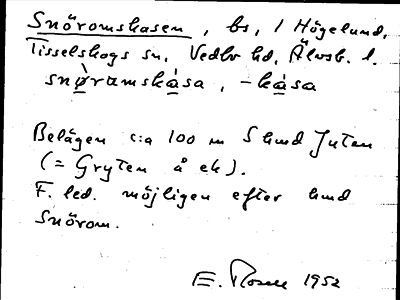 Snöromskasen, bs, i Högelund,
Tisselskogs sn, Vedbo hd, Älvsb. l.
snø̀ramskása, -kása
Belägen c:a 100 m S hmd Juten
(= Gryten å ek).
F. led. möjligen efter hmd
Snörom.
E. 1952